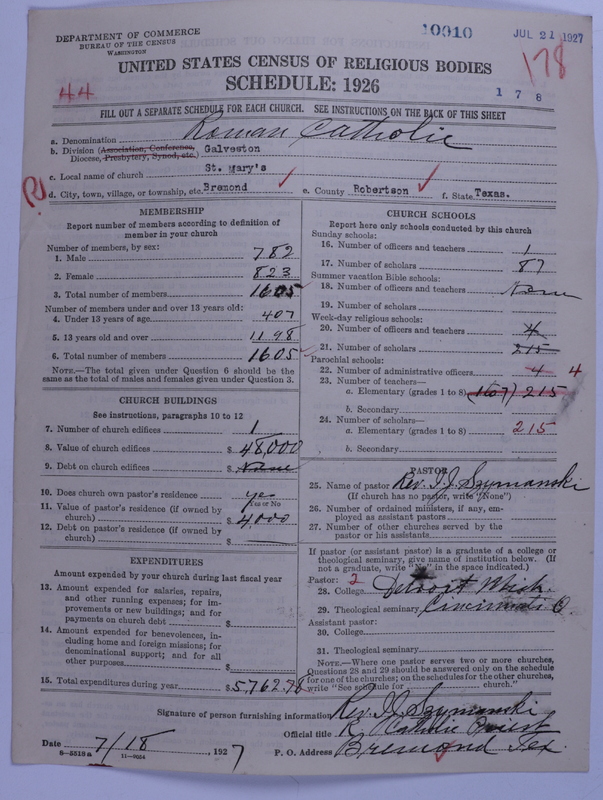 DEPARTMENT OF COMMERCE
BUREAU OF THE CENSUS
WASHINGTON
10010
JUL 21 1927
178
UNITED STATES CENSUS OF RELIGIOUS BODIES
SCHEDULE: 1926
44
1 7 8
FILL OUT A SEPARATE SCHEDULE FOR EACH CHURCH. SEE INSTRUCTIONS ON THE BACK OF THIS SHEET
a. Denomination Roman Catholic
b. Division (Association, Conference, Diocese, Presbytery, Synod, etc.) Galveston
c. Local name of church St. Mary's
d. City, town, village, or township, etc. Bremond e. County Robertson f. State Texas.
MEMBERSHIP
Report number of members according to definition of
member in your church
Number of members, by sex:
1. Male 782
2. Female 823
3. Total number of members 1605
Number of members under and over 13 years old:
4. Under 13 years of age 407
5. 13 years old and over 1198
6. Total number of members 1605
NOTE.—The total given under Question 6 should be the
same as the total of males and females given under Question 3.
CHURCH BUILDINGS
See instructions, paragraphs 10 to 12
7. Number of church edifices 1
8. Value of church edifices $ 48,000
9. Debt on church edifices $ None
10. Does church own pastor's residence yes
Yes or No
11. Value of pastor's residence (if owned by
church) $ 4,000
12. Debt on pastor's residence (if owned by
church) $
EXPENDITURES
Amount expended by your church during last fiscal year
13. Amount expended for salaries, repairs,
and other running expenses; for im-
provements or new buildings; and for
payments on church debt $
14. Amount expended for benevolences, in-
cluding home and foreign missions; for
denominational support; and for all
other purposes $
15. Total expenditures during year $ 5,762.78
CHURCH SCHOOLS
Report here only schools conducted by this church
Sunday schools:
16. Number of officers and teachers 1
17. Number of scholars 87
Summer vacation Bible schools:
18. Number of officers and teachers None
19. Number of scholars
Week-day religious schools:
20. Number of officers and teachers 4
21. Number of scholars 215
Parochial schools:
22. Number of administrative officers 4 4
23. Number of teachers—
a. Elementary (grades 1 to 8) (1607) 215
b. Secondary
24. Number of scholars—
a. Elementary (grades 1 to 8) 215
b. Secondary
PASTOR
25. Name of pastor Rev. I. J. Szymanski
(If church has no pastor, write "None")
26. Number of ordained ministers, if any, em-
ployed as assistant pastors
27. Number of other churches served by the
pastor or his assistants
If pastor (or assistant pastor) is a graduate of a college or
theological seminary, give name of institution below. (If
not a graduate, write "No" in the space indicated.)
Pastor: 2
28. College Detroit Mich.
29. Theological seminary Cincinnati O
Assistant pastor:
30. College
31. Theological seminary
NOTE.—Where one pastor serves two or more churches,
Questions 28 and 29 should be answered only on the schedule
for one of the churches; on the schedules for the other churches,
write "See schedule for church."
Signature of person furnishing information Rev. I. J. Szymanski
Official title R. Catholic Priest
Date 7/18, 1927 P. O. Address Bremond Tex.
8-5518a 11-9054